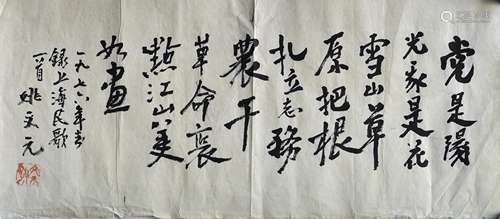 党是陽
光我是花
雪山草
原把根
扎立志務
農干
革命裝
點江山美
如畫
一九七六年春
錄上海民歌
一首 姚文元